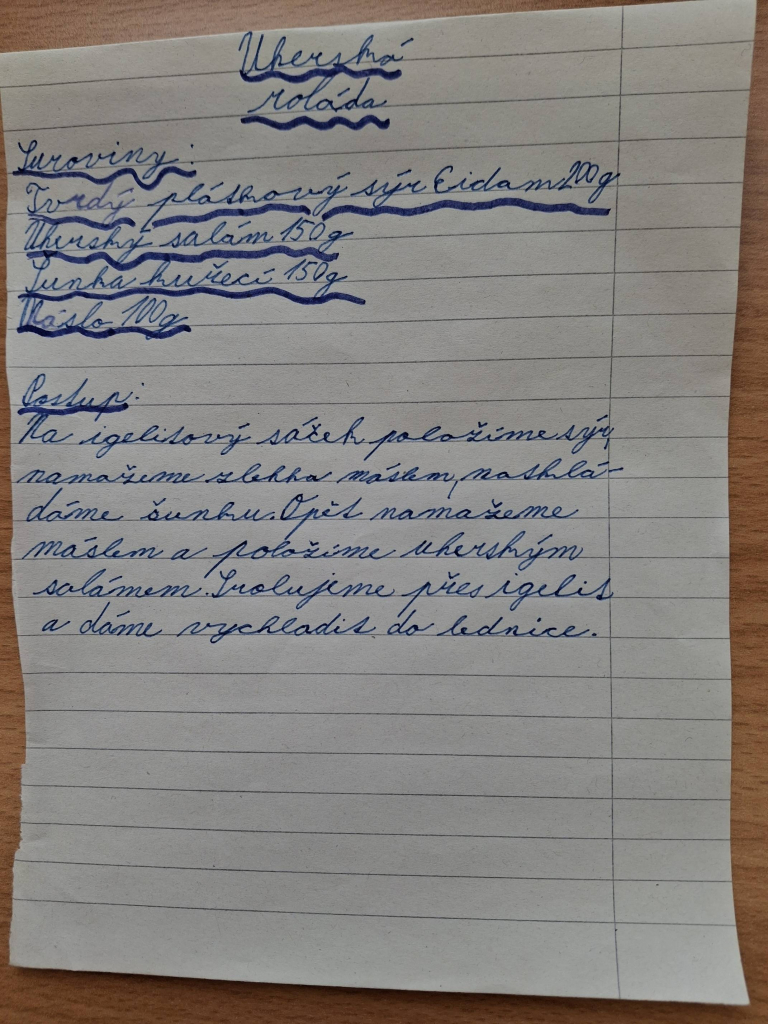 Uherská
roláda
Suroviny:
Tvrdý plátkový sýr Eidam 200g
Uherský salám 150g
Šunka kuřecí 150g
Máslo 100g
Postup:
Na igelitový sáček položíme sýr,
namažeme zlehka máslem, nasklá-
dáme šunku. Opět namažeme
máslem a položíme uherským
salámem. Srolujeme přes igelit
a dáme vychladit do lednice.